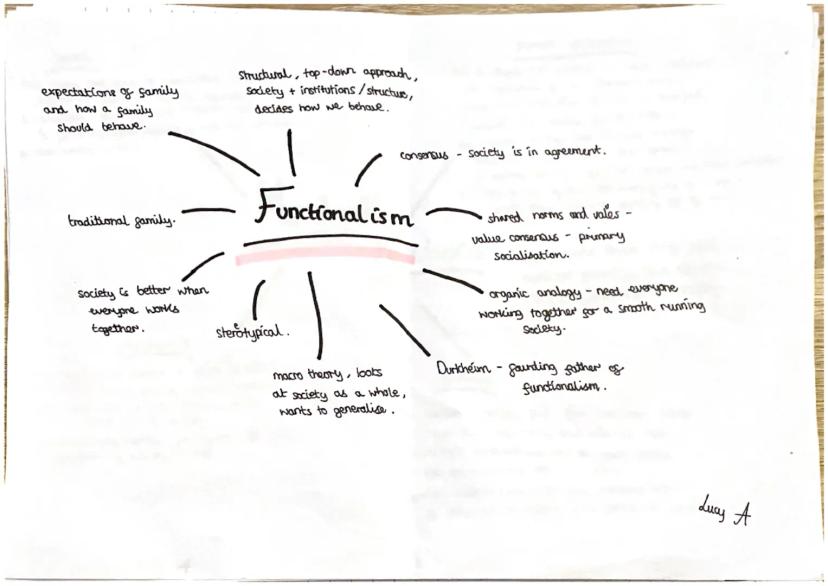 structural, top-down approach,
society + institutions/structure,
decides how we behave.
expectations of family
and how a family
should behave.
consensus - society is in agreement.
Functionalism
traditional family.
shared norms and vales -
value consensus - primary
socialisation.
society is better when
everyone works
together.
organic analogy - need everyone
working together for a smooth running
society.
sterotypical.
macro theory, looks
at society as a whole,
wants to generalise.
Durkheim - founding father of
functionalism.
Lucy A